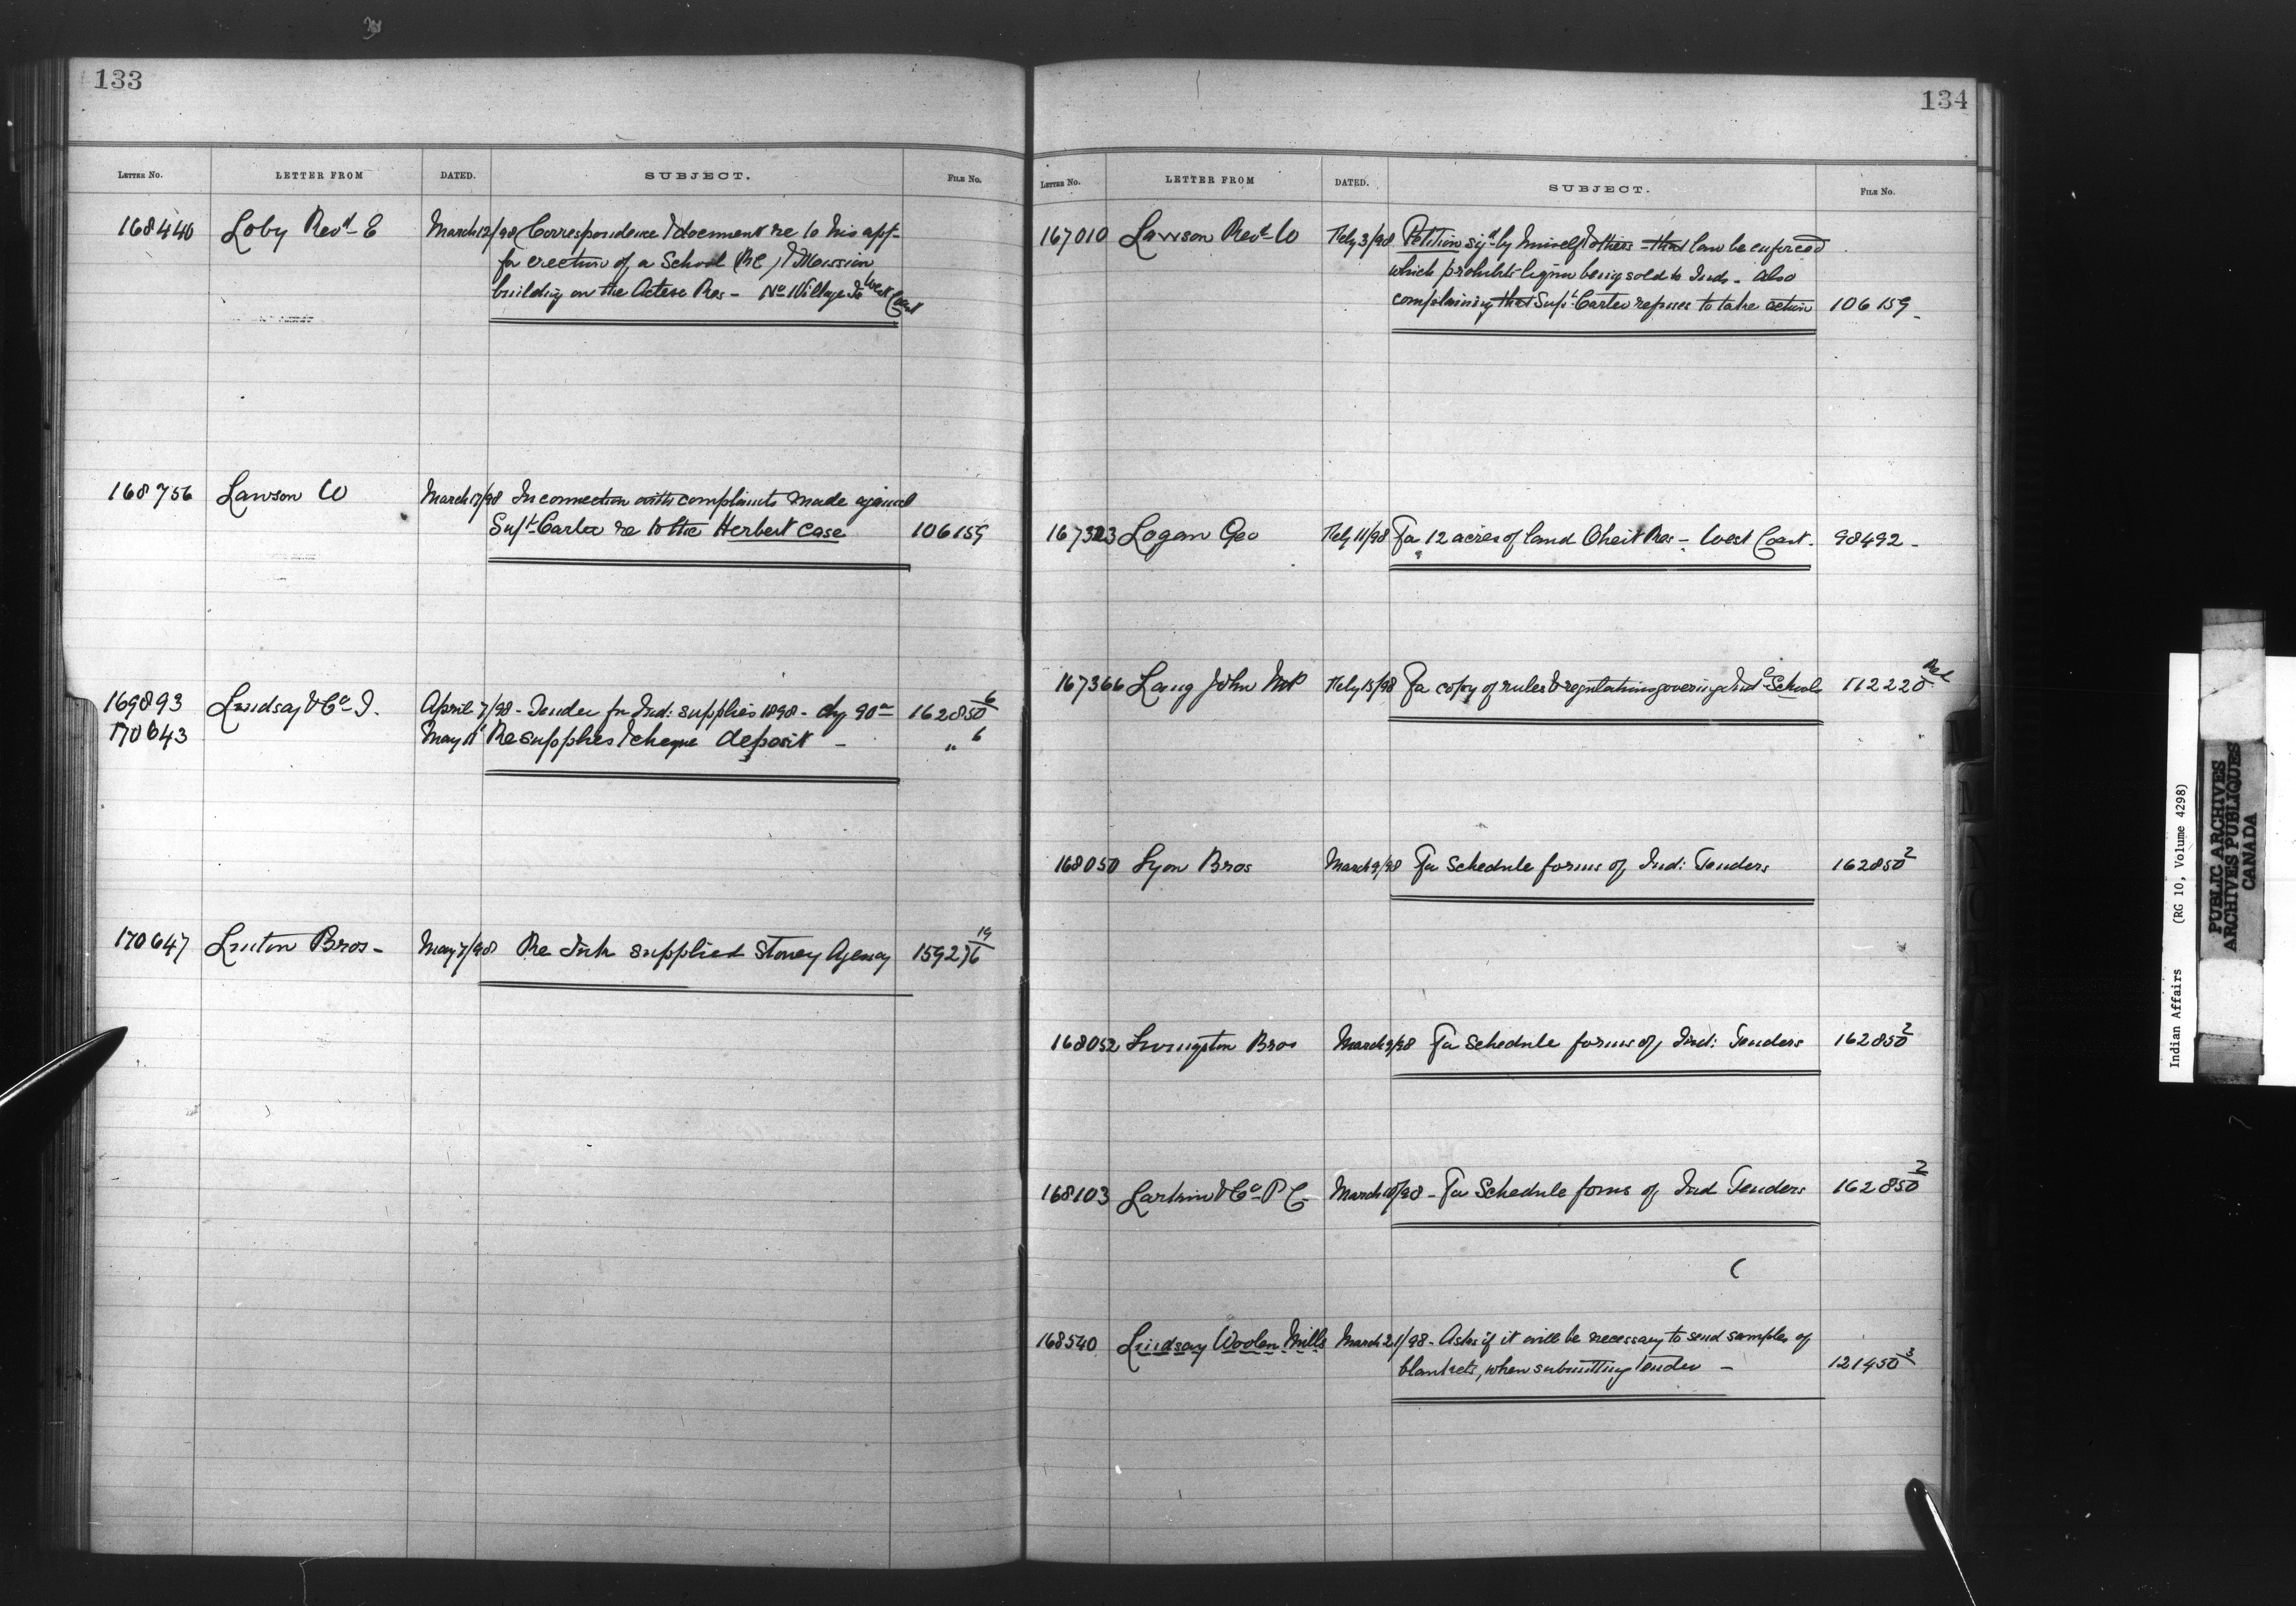 133
LETTER No. LETTER FROM DATED. SUBJECT. FILE No.
168440 Loby Revd E March 12/98 Correspondence & document re to his app-
for erection of a School (RC) & Mission
building on the Res - No Village Id West Coast
168756 Lawson W March 17/98 In connection with complaints made against
Supt Carter re to the Herbert case 106159
169893 Lindsay & Co J. April 7/98 - Tender for Ind: supplies 1898 - chq 90 162850 6
170643 May 11 Re supplies & cheque deposit - " 6
170647 Linton Bros - May 7/98 Re Ink supplied Stoney Agency 159276 19
134
LETTER No. LETTER FROM DATED. SUBJECT. FILE No.
167010 Lawson Revd W Feby 3/98 Petition sigd by himself & others - that law be enforced
which prohibits liquor being sold to Inds - also
complaining that Supt Carter refuses to take action 106159 -
167323 Logan Geo Feby 11/98 For 12 acres of land Res - West Coast. 98492 -
167366 Lang John MP Feby 15/98 For copy of rules & regulations governing Ind Schools 112220 Red
168050 Lyon Bros March 9/98 For Schedule forms of Ind: Tenders 162850 2
168052 Livingston Bros March 9/98 For Schedule forms of Ind: Tenders 162850 2
168103 Larkin & Co P C March 10/98 - For Schedule forms of Ind Tenders 162850 2
168540 Lindsay Woolen Mills March 21/98 - Asks if it will be necessary to send samples of
blankets, when submitting tender - 121450 3
Indian Affairs (RG 10, Volume 4298)
PUBLIC ARCHIVES
ARCHIVES PUBLIQUES
CANADA